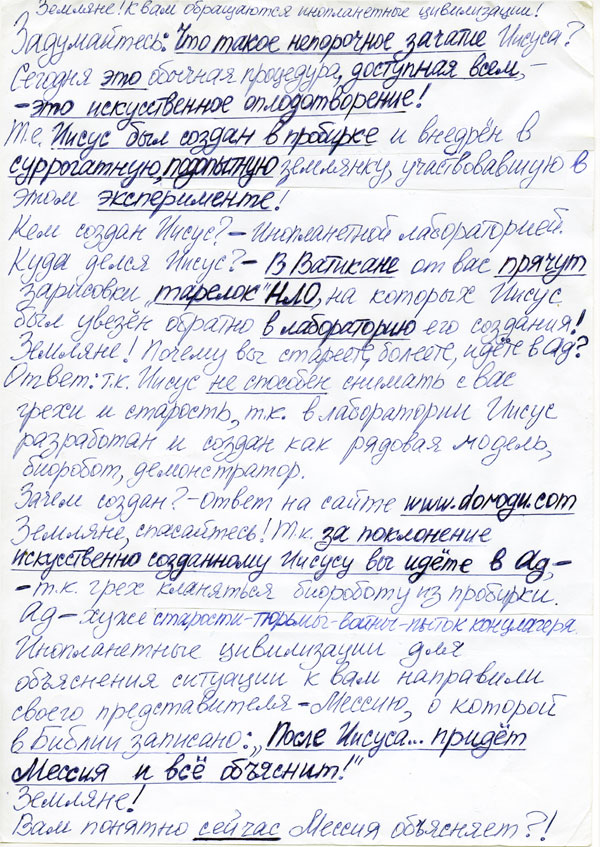 Земляне! К вам обращаются инопланетные цивилизации!
Задумайтесь: Что такое непорочное зачатие Иисуса?
Сегодня это обычная процедура, доступная всем, -
- это искусственное оплодотворение!
Т.е. Иисус был создан в пробирке и внедрён в
суррогатную, подопытную землянку, участвовавшую в
этом эксперименте!
Кем создан Иисус? - Инопланетной лабораторией.
Куда делся Иисус? - В Ватикане от вас прячут
зарисовки „тарелок" НЛО, на которых Иисус
был увезён обратно в лабораторию его создания!
Земляне! Почему вы стареете, болеете, идёте в Ад?
Ответ: т.к. Иисус не способен снимать с вас
грехи и старость, т.к. в лаборатории Иисус
разработан и создан как рядовая модель,
биоробот, демонстратор.
Зачем создан? - Ответ на сайте www.dorogu.com
Земляне, спасайтесь! Т.к. за поклонение
искусственно созданному Иисусу вы идёте в Ад, -
- т.к. грех кланяться биороботу из пробирки.
Ад - хуже старости-тюрьмы-войны-пыток концлагеря.
Инопланетные цивилизации для
объяснения ситуации к вам направили
своего представителя - Мессию, о которой
в Библии записано: „После Иисуса... придёт
Мессия и всё объяснит!"
Земляне!
Вам понятно сейчас Мессия объясняет?!